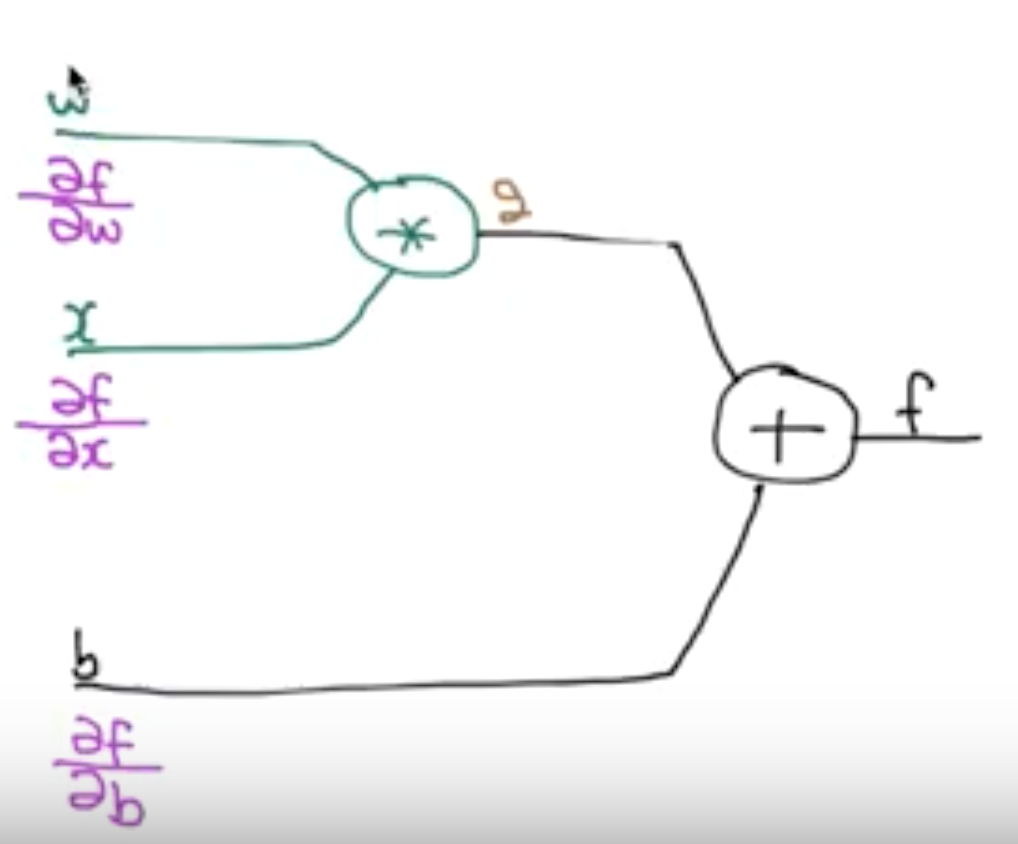 w
∂f
∂w
*
g
x
∂f
∂x
+
f
b
∂f
∂b